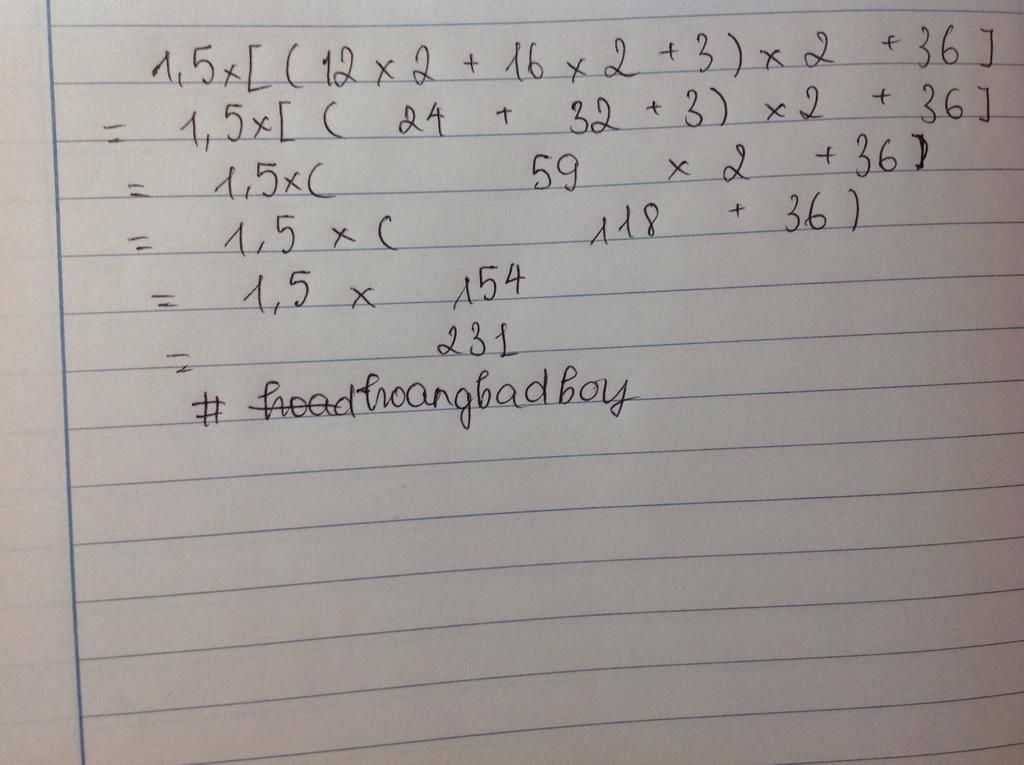 1,5×[(12 × 2 + 16 × 2 + 3) × 2 + 36]
= 1,5×[( 24 + 32 + 3) × 2 + 36]
= 1,5×( 59 × 2 + 36)
= 1,5 × ( 118 + 36)
= 1,5 × 154
= 231
# hoangbadboy